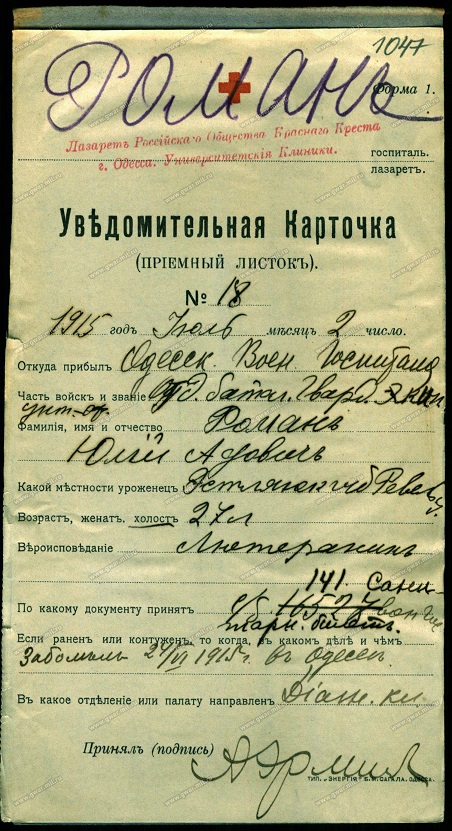 1047
РОМАНЪ
Форма 1.
Лазаретъ Россійскаго Общества Краснаго Креста
г. Одесса. Университетскія Клиники.
госпиталь.
лазаретъ.
Увѣдомительная Карточка
(ПРІЕМНЫЙ ЛИСТОКЪ).
№ 18
1915 годъ Іюль мѣсяцъ 2 число.
Откуда прибылъ Одесск. Воен. Госпиталь
Часть войскъ и званіе Отд. батал. Гвард. Экип
унт-оф.
Фамилія, имя и отчество Романъ
Юлій
Какой мѣстности уроженецъ
Возрастъ, женатъ, холостъ 27 л
Вѣроисповѣданіе Лютеранинъ
141. Сани-
По какому документу принятъ 16527
тарн. билетъ.
Если раненъ или контуженъ, то когда, въ какомъ дѣлѣ и чѣмъ
Заболѣлъ 24/VI 1915 г. въ Одессѣ.
Въ какое отдѣленіе или палату направленъ
Принялъ (подпись)
ТИП. „ЭНЕРГІЯ" Б. И. САГАЛА, ОДЕССА.